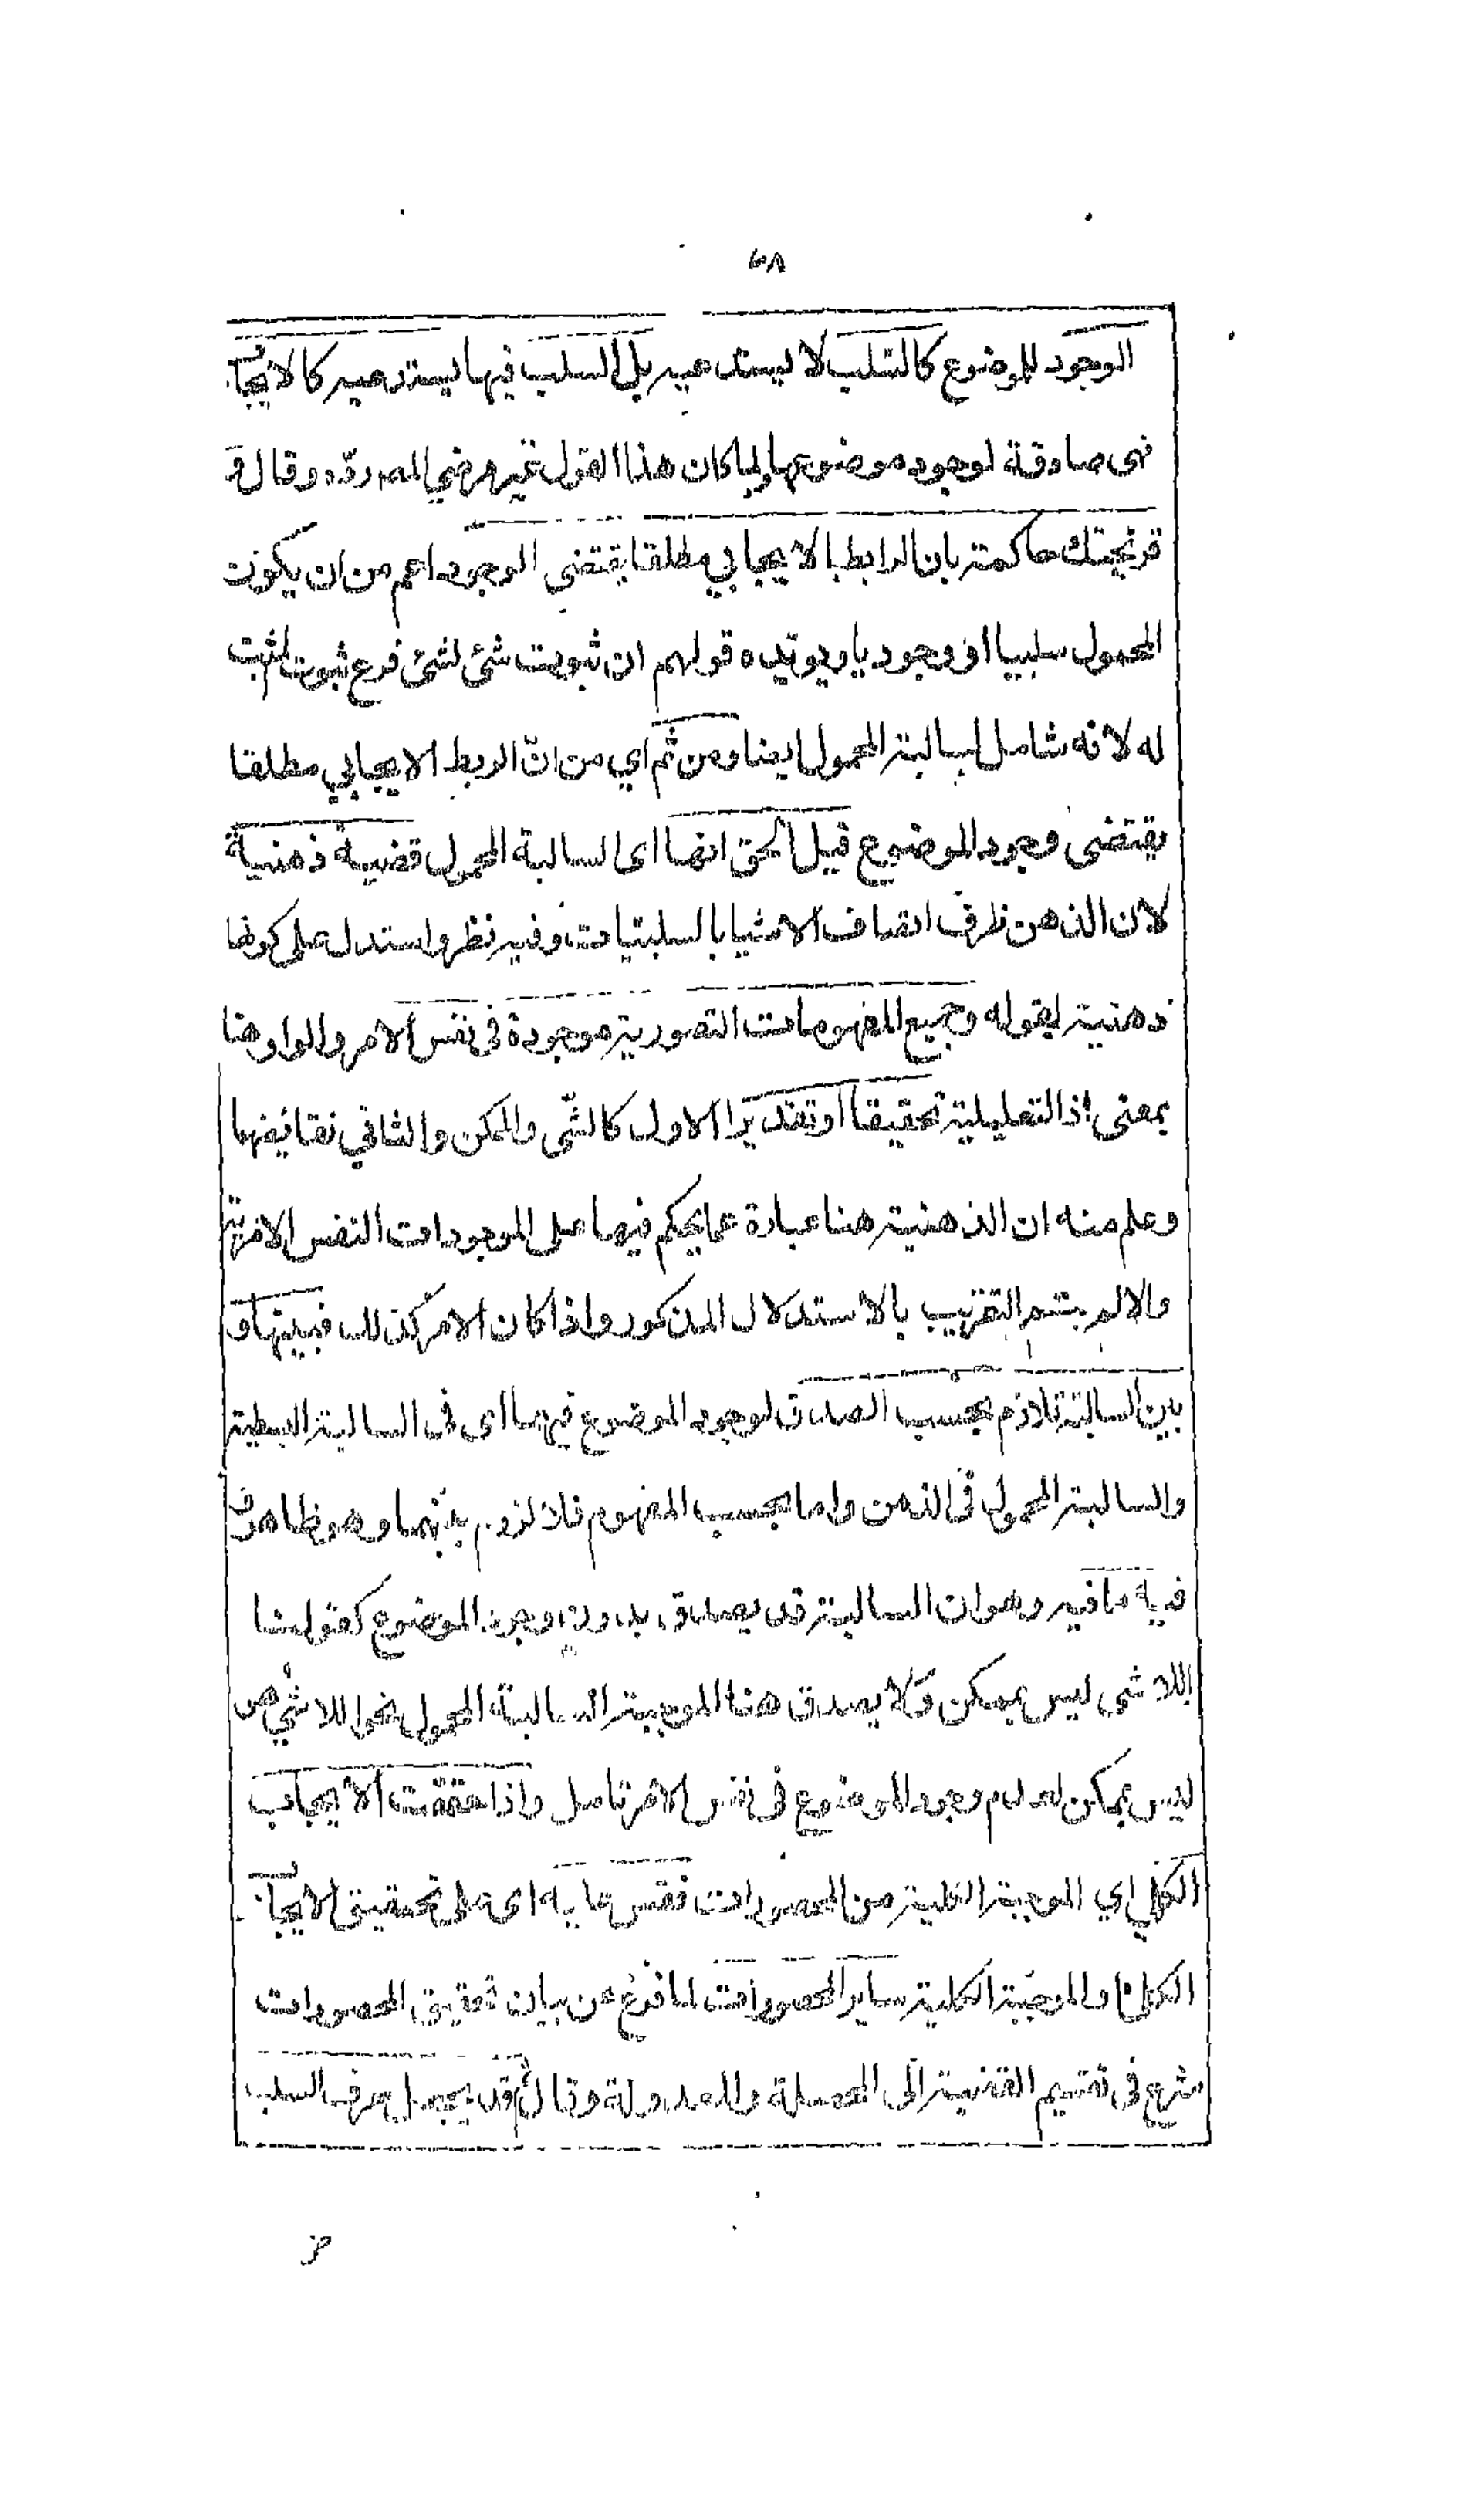 ٦٨
الوجود للموضوع كالسلب لا يستدعيه بل السلب فيها يستدعيه كالايجاب
فهى صادقة لوجود موضوعها ولما كان هذا القول غير مرضي المصـ ردّه وقال و
قريحتك حاكمة بان الرابط بالايجابي مطلقا يقتضى الوجود اعم من ان يكون
المحمول سلبيا او وجوديا ويويّده قولهم ان ثبوت شئ لشئ فرع ثبوت المثبت
له لانه شامل لسالبة المحمول ايضا ومن ثم اي من انّ الربط الايجابي مطلقا
يقتضى وجود الموضوع قيل الحق انها اى السالبة المحمول قضية ذهنية
لان الذهن ظرف اتصاف الاشيا بالسلبيات وفيه نظر واستدل على كونها
ذهنية بقوله وجميع المفهومات التصورية موجودة فى نفس الامر والواو هنا
بمعنى اذ التعليلية تحقيقا او تقديرا الاول كالشى والممكن والثاني نقائضها
وعلم منه ان الذهنية هنا عبارة عما يحكم فيها على الموجودات النفس الامرية
والا لم يتم التقريب بالاستدلال المذكور واذا كان الامر كذلك فبينها و
بين السالبة تلازم بحسب الصدق لوجود الموضوع فيهما اى فى السالبة البسيطة
والسالبة المحمول فى الذهن واما بحسب المفهوم فلا لزوم بينهما وهو ظاهر و
فيه ما فيه وهو ان السالبة قد يصدق بدون وجود الموضوع كقولنا
اللاشى ليس بممكن ولا يصدق هنا الموجبة السالبة المحمول نحو اللاشي هو
ليس بممكن لعدم وجود الموضوع فى نفس الامر تامل واذا حققت الايجاب
الكلي اي الموجبة الكلية من المحصورات فقس عليه اى على تحقيق الايجاب
الكلي والموجبة الكلية ساير المحصورات لما فرغ عن بيان تحقيق المحصورات
شرع فى تقسيم القضية الى المحصلة والمعدولة وقال ثم قد يجعل حرف السلب